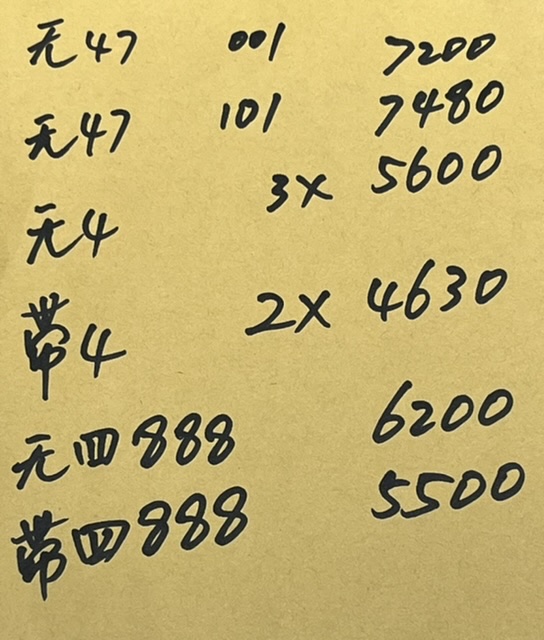 无47 001 7200
无47 101 7480
无4 3x 5600
带4 2x 4630
无四888 6200
带四888 5500